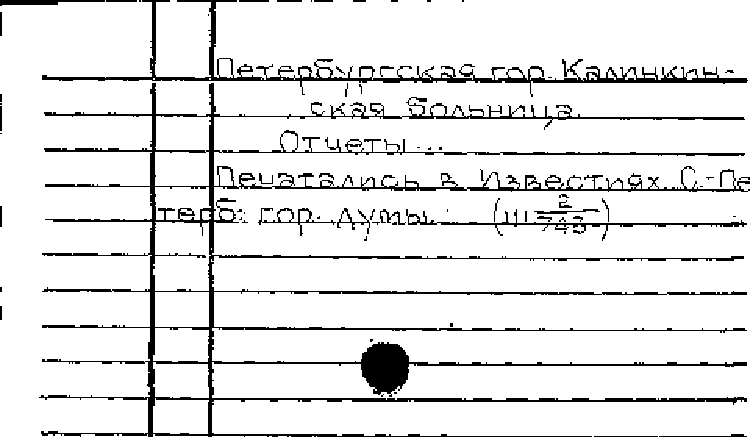 Петербургская гор. Калинкин-
ская больница.
Отчеты...
Печатались в Известиях С-Пе
терб. гор. думы. (III 2/743)